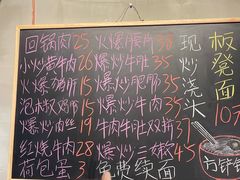 回锅肉25 火爆腰片38
小炒黄牛肉26 爆炒牛肚35
火爆猪肝15 爆炒肥肠35
泡椒鸡杂15 爆炒牛肉35
爆炒肉丝19 牛肉牛肚双拼37
红烧牛肉28 爆炒三嫩45
荷包蛋3 免费续面
现炒浇头
板凳面
10